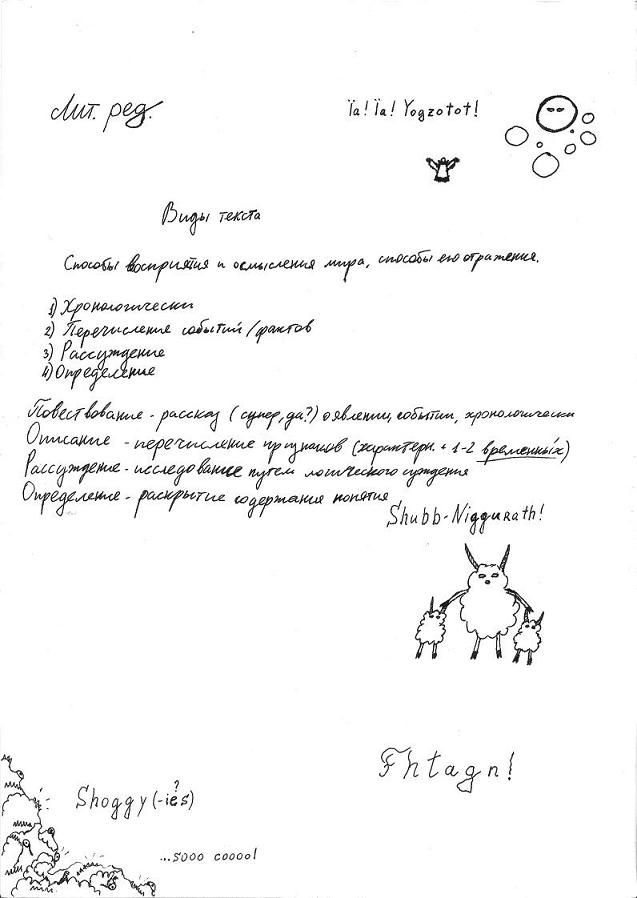 Лит. ред.
Ïa! Ïa! Yogzotot!
Виды текста
Способы восприятия и осмысления мира, способы его отражения.
1) Хронологически
2) Перечисление событий/фактов
3) Рассуждение
4) Определение
Повествование - рассказ (супер, да?) о явлении, событии, хронологически
Описание - перечисление признаков (характерн. + 1-2 временных)
Рассуждение - исследование путем логического суждения
Определение - раскрытие содержания понятия
Shubb-Niggurath!
Fhtagn!
Shoggy (-ies)
?
...sooo cooool